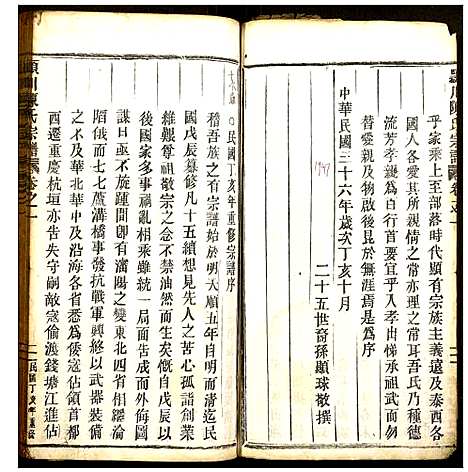 潁川陳氏宗譜
乎家乘上至部落時代顯有宗族主義遠及泰西各
國人各愛其所親人心之常亦理之常吾氏乃種德
流芳孝親為百行首要于焉入孝出悌承祖武而勿
替愛親及物啟後昆於無涯焉是為序
中華民國三十六年歲次丁亥十月
1947
二十五世裔孫顯球敬撰
民國丁亥年重修宗譜序
稽吾族之有宗譜始於明天順五年自明清迄民
國戊辰纂修凡十五續想見先人之苦心孤詣創業
維艱尊祖敬宗之念不禁油然而生矣慨自戊辰
後國家多事禍亂相乘雖統一局面告成而外侮
謀日亟不遑間有瀋陽之變東北四省相繼淪
陷俄而七七蘆溝橋事發抗戰軍興終以武器裝備
故北及華北華中及沿海各省悉為倭寇佔領首都
西遷重慶杭垣亦告失守嗣敵寇偷渡錢塘江進佔
潁川陳氏宗譜
卷之一
一
民國丁亥年重修